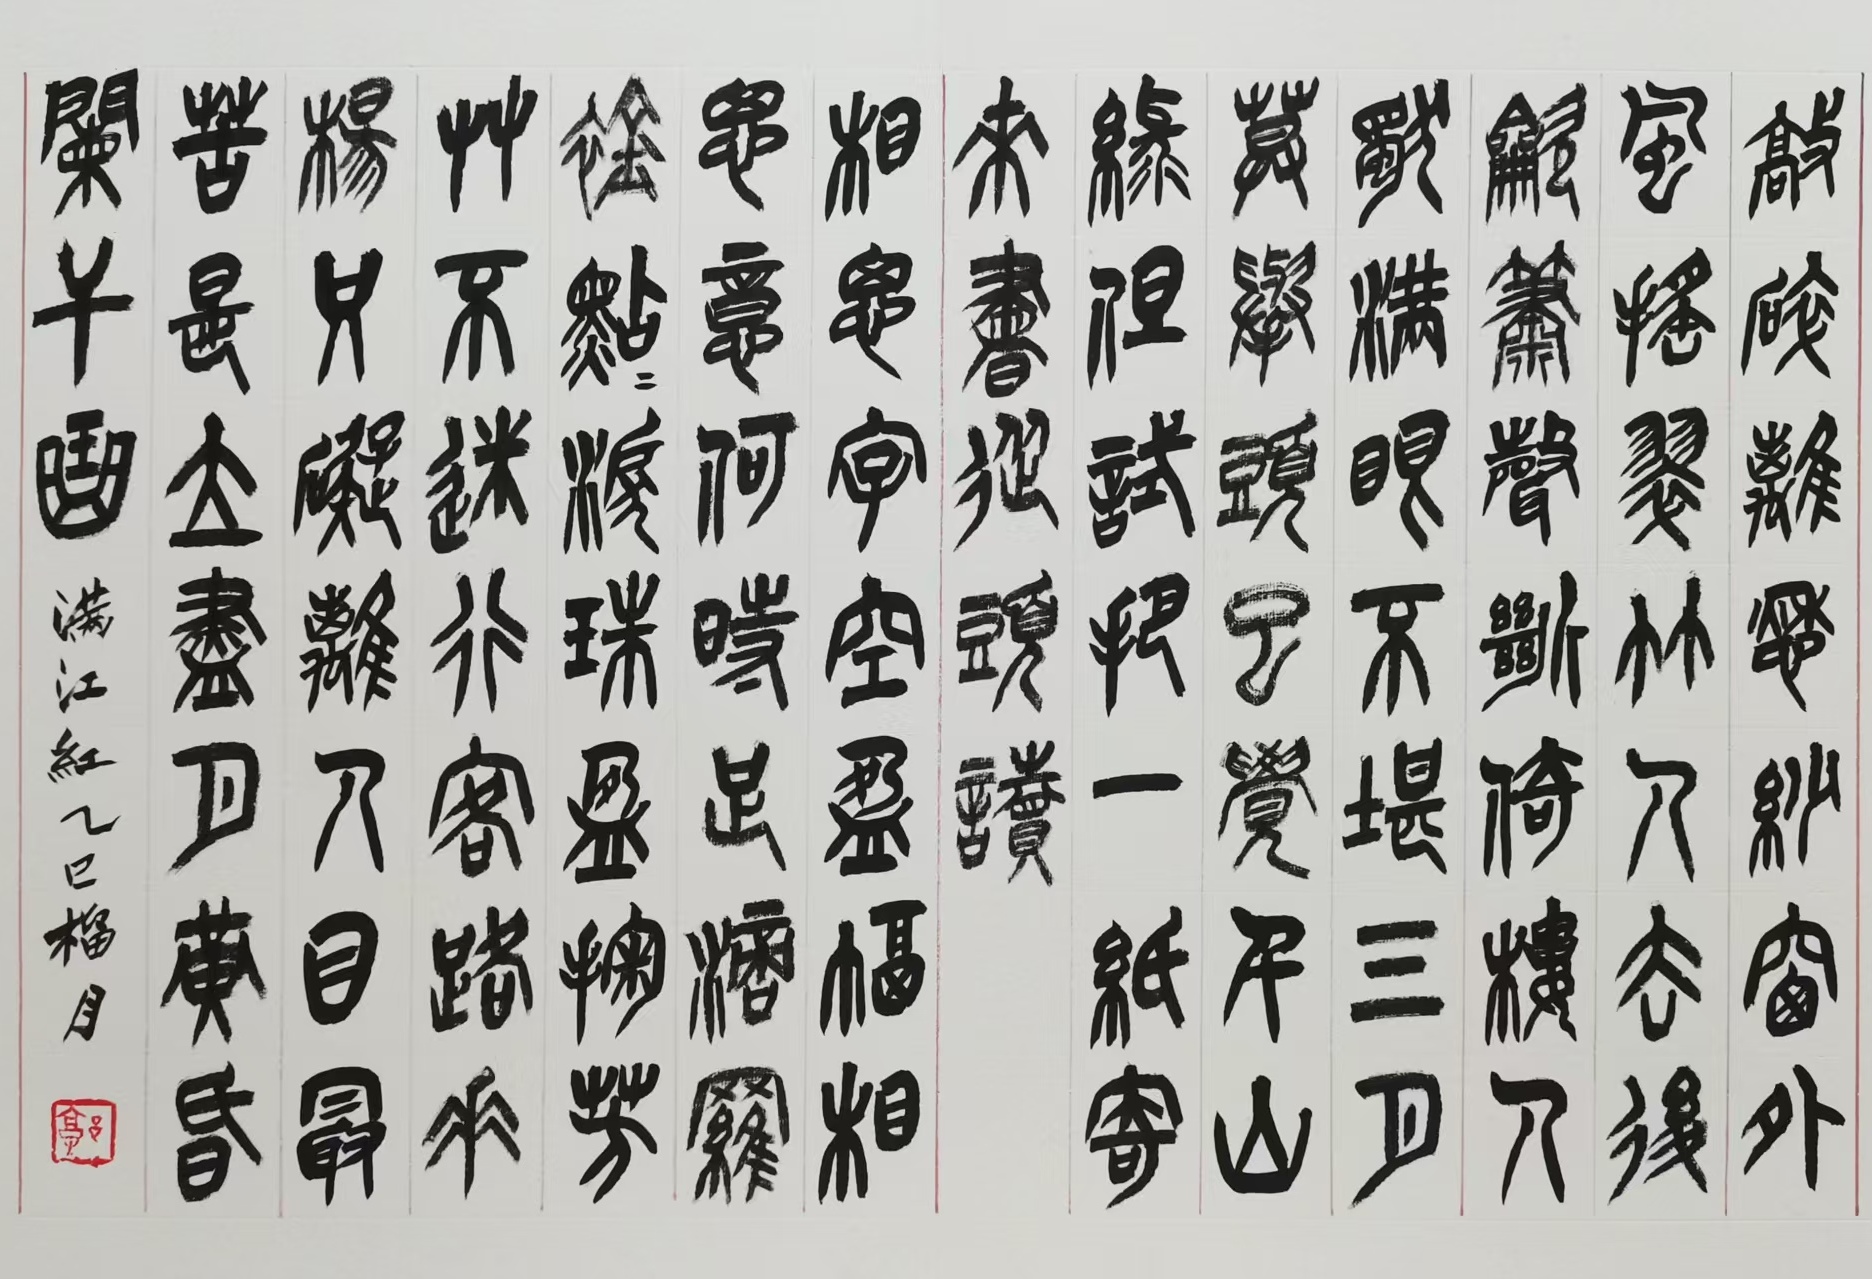 敲碎離愁紗窗外
風搖翠竹人去後
龡簫聲斷倚樓人
獨滿眼不堪三月
莫舉頭已覺千山
綠但試把一紙寄
來書從頭讀
相思字空盈幅相
思意何時足滴羅
襟點〻淚珠盈掬芳
艸不迷行客路垂
楊只礙離人目最
苦是立盡月黃昏
闌干曲
满江紅乙巳榴月